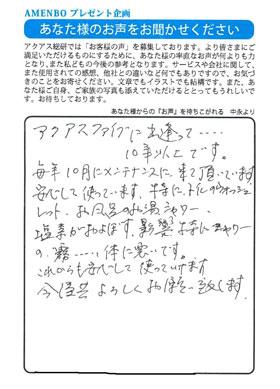 AMENBO プレゼント企画
あなた様のお声をお聞かせください
アクアス総研では「お客様の声」を募集しております。より皆さまにご
満足いただけるものにするために、あなた様の率直なお声が何よりも力
となり、また私どもの今後の参考となります。サービスや会社に関して、
また使用されての感想、他社との違いなど何でもありますので、お気づ
きのことをお寄せください。文章でもイラストでも結構です。また、あ
なた様ご自身、ご家族の写真も添えていただけるととってもうれしいで
す。お待ちしております。
あなた様からの「お声」を待ちこがれる 中永より
アクアスファイブに出逢って‥‥
10年以上です。
毎年10月にメンテナンスに来て頂いています
安心して使っています。特に、トイレのウォッシュ
レット、お風呂のお湯シャワー、
塩素がおよぼす、影響、特にシャワー
の霧‥‥、体に悪いです。
これからも安心して使っていけます
今後共よろしくお願い致します